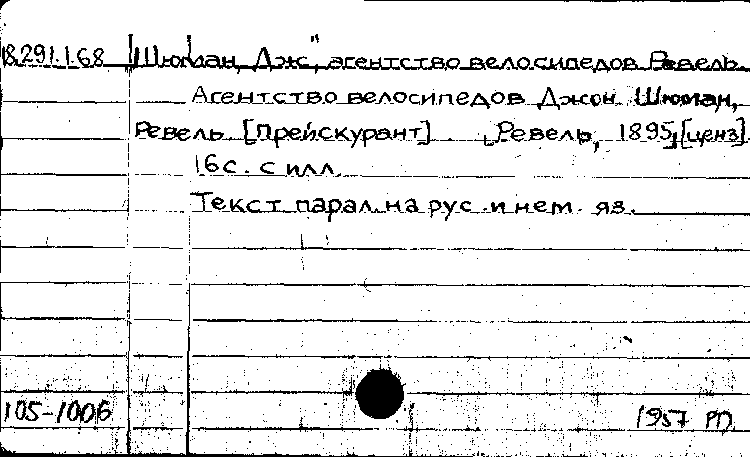 18.291.1.68 Шюман, Дж.", агентство велосипедов Ревель.
Агентство велосипедов Джон Шюман,
Ревель. [Прейскурант]. [Ревель, 1895] [ценз].
16с. с илл.
Текст парал. на рус. и нем. яз.
105-1006 1957